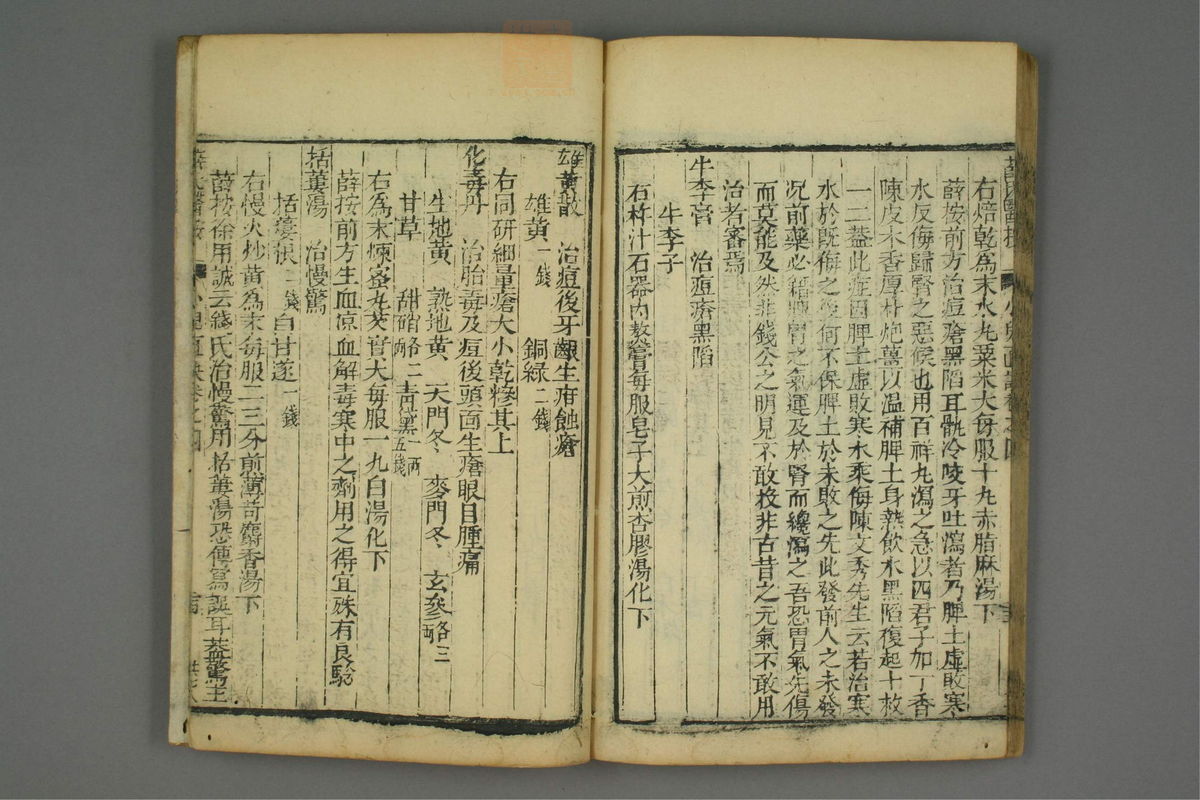 右焙乾為末水丸粟米大每服十丸赤脂麻湯下
薛按前方治痘瘡黑陷耳骩冷咬牙吐瀉者乃脾土虛敗寒
水反侮歸腎之惡候也用百祥丸瀉之急以四君子加丁香
陳皮木香厚朴炮薑以温補脾土身熱飲水黑陷復起十救
一二蓋此症因脾土虛敗寒水乘侮陳文秀先生云若治寒
水於既侮之後何不保脾土於未敗之先此發前人之未發
况前藥必藉脾胃之氣運及於腎而纔瀉之吾恐胃氣先傷
而莫能及然非錢公之明見不敢投非古昔之元氣不敢用
治者審焉
牛李膏 治痘瘡黑陷
牛李子
右杵汁石器內熬膏每服皂子大煎杏膠湯化下
雄黃散 治痘後牙齦生疳蝕瘡
雄黃一錢 銅綠二錢
右同研細量瘡大小乾糝其上
化毒丹 治胎毒及痘後頭面生瘡眼目腫痛
生地黃 熟地黃 天門冬 麥門冬 玄參各三兩
甘草 甜硝各二兩 青黛一兩五錢
右為末煉蜜丸芡實大每服一丸白湯化下
薛按前方生血凉血解毒寒中之劑用之得宜殊有良驗
括蔞湯 治慢驚
括蔞根二錢 白甘遂一錢
右慢火炒黃為末每服二三分煎薄荷麝香湯下
薛按徐用誠云錢氏治慢驚用括蔞湯恐傳寫誤耳蓋驚生